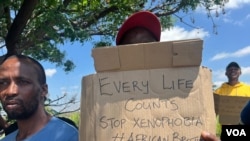 EVERY LIFE
COUNTS
STOP XENOPHOBIA
#AFRICAN
VOA